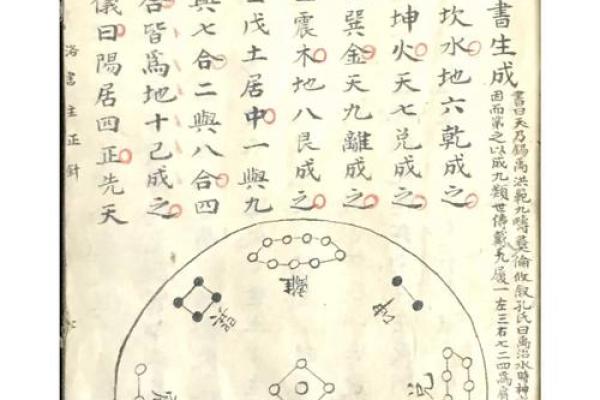 書生成
書曰天乃錫禹洪範九疇彝倫攸敘孔氏曰禹治水時神
因而第之以成九類世傳戴九履一左三右七二四為肩
坎水地六乾成之
坤火天七兌成之
巽金天九離成之
震木地八艮成之
戊土居中一與九
與七合二與八合四
合皆爲地十己成之
儀曰陽居四正先天
洛書主正針
離
坤
巽
兌